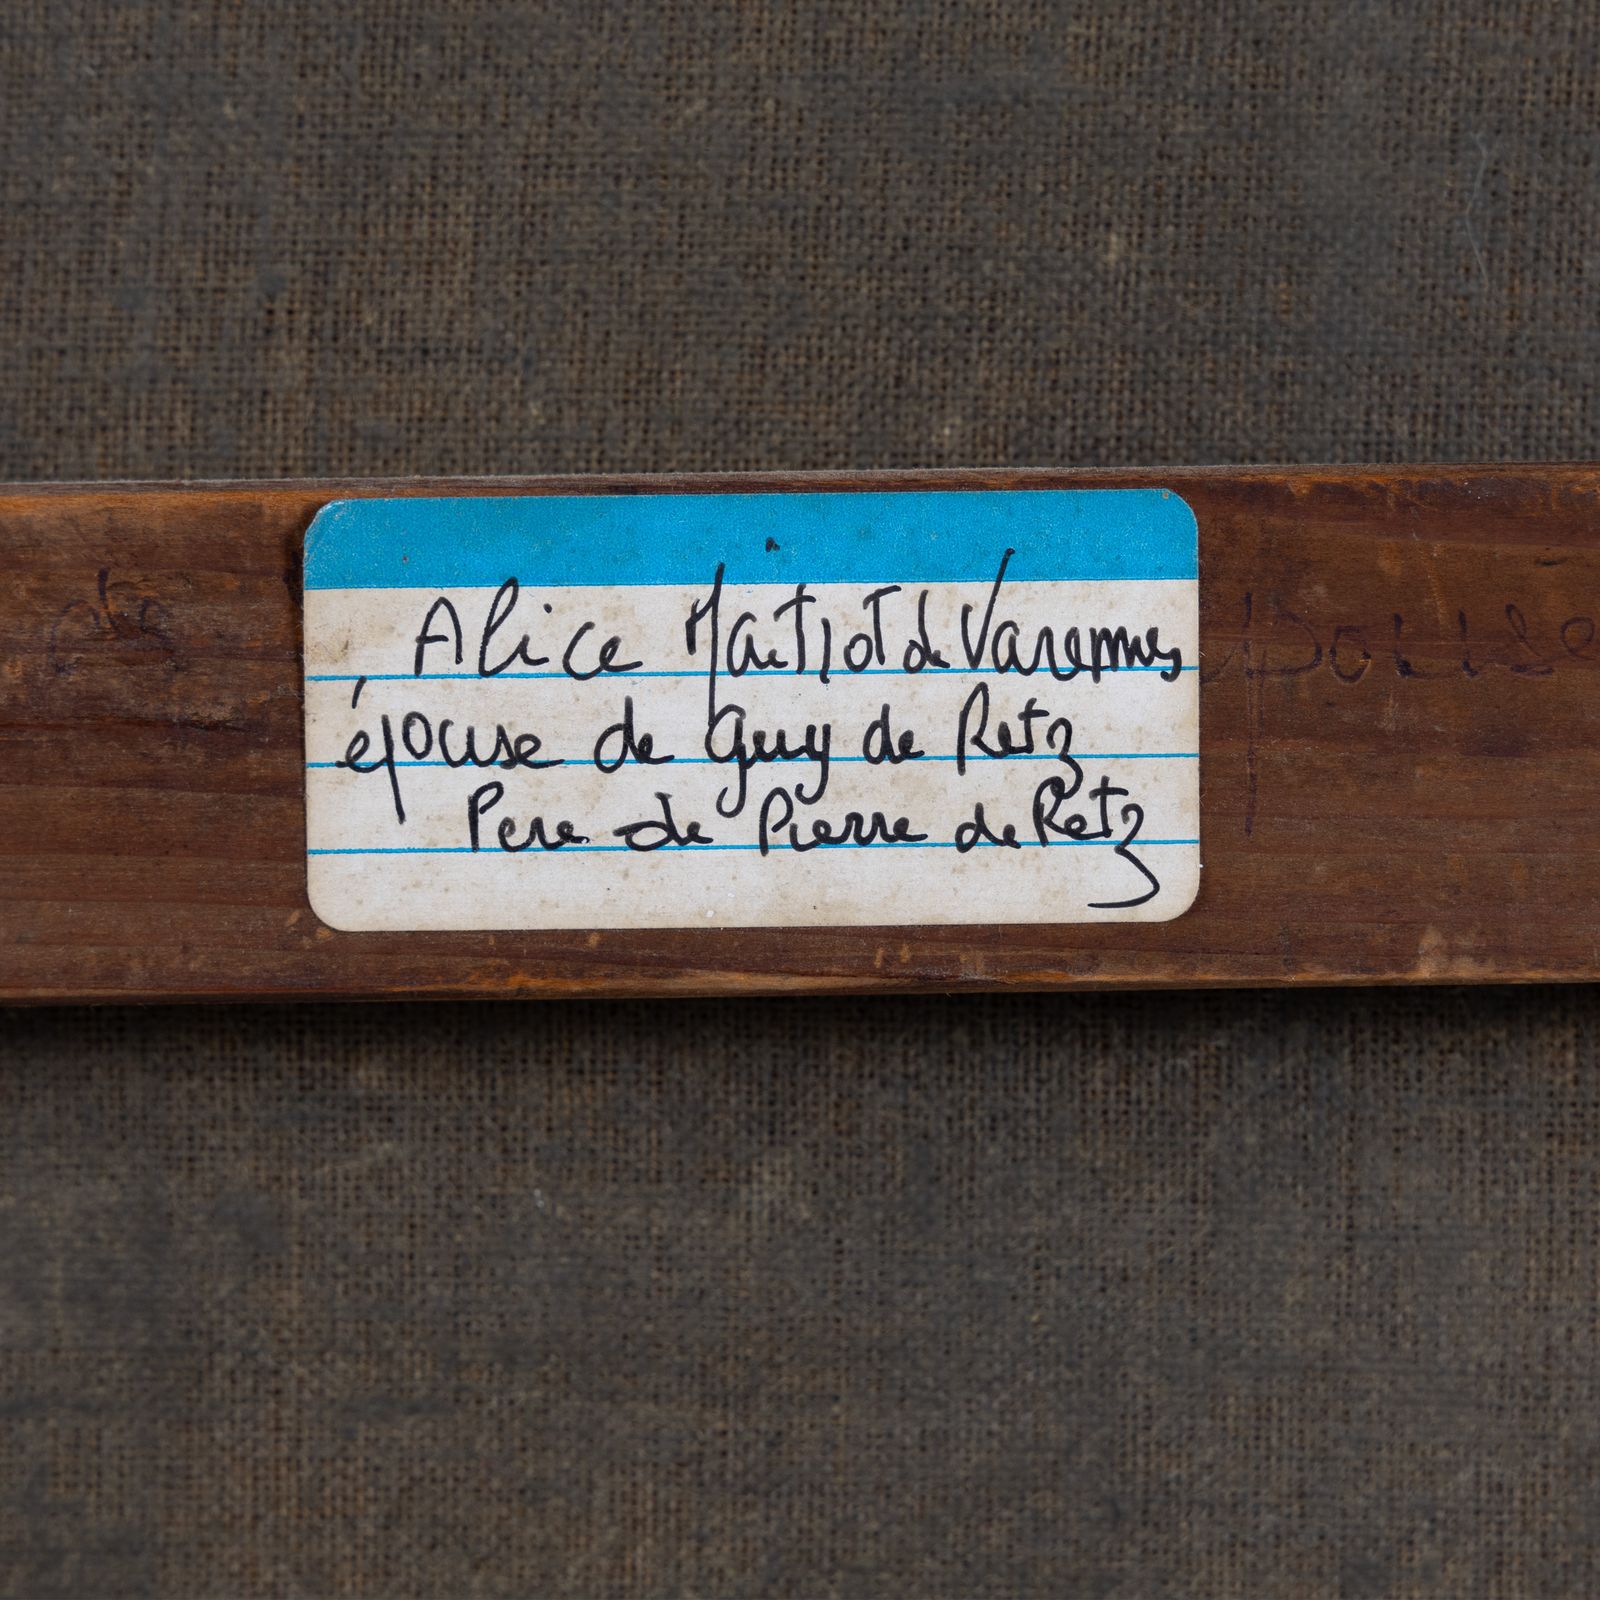 Alice Matiot de Varennes
épouse de Guy de Retz
Pere de Pierre de Retz
épouse